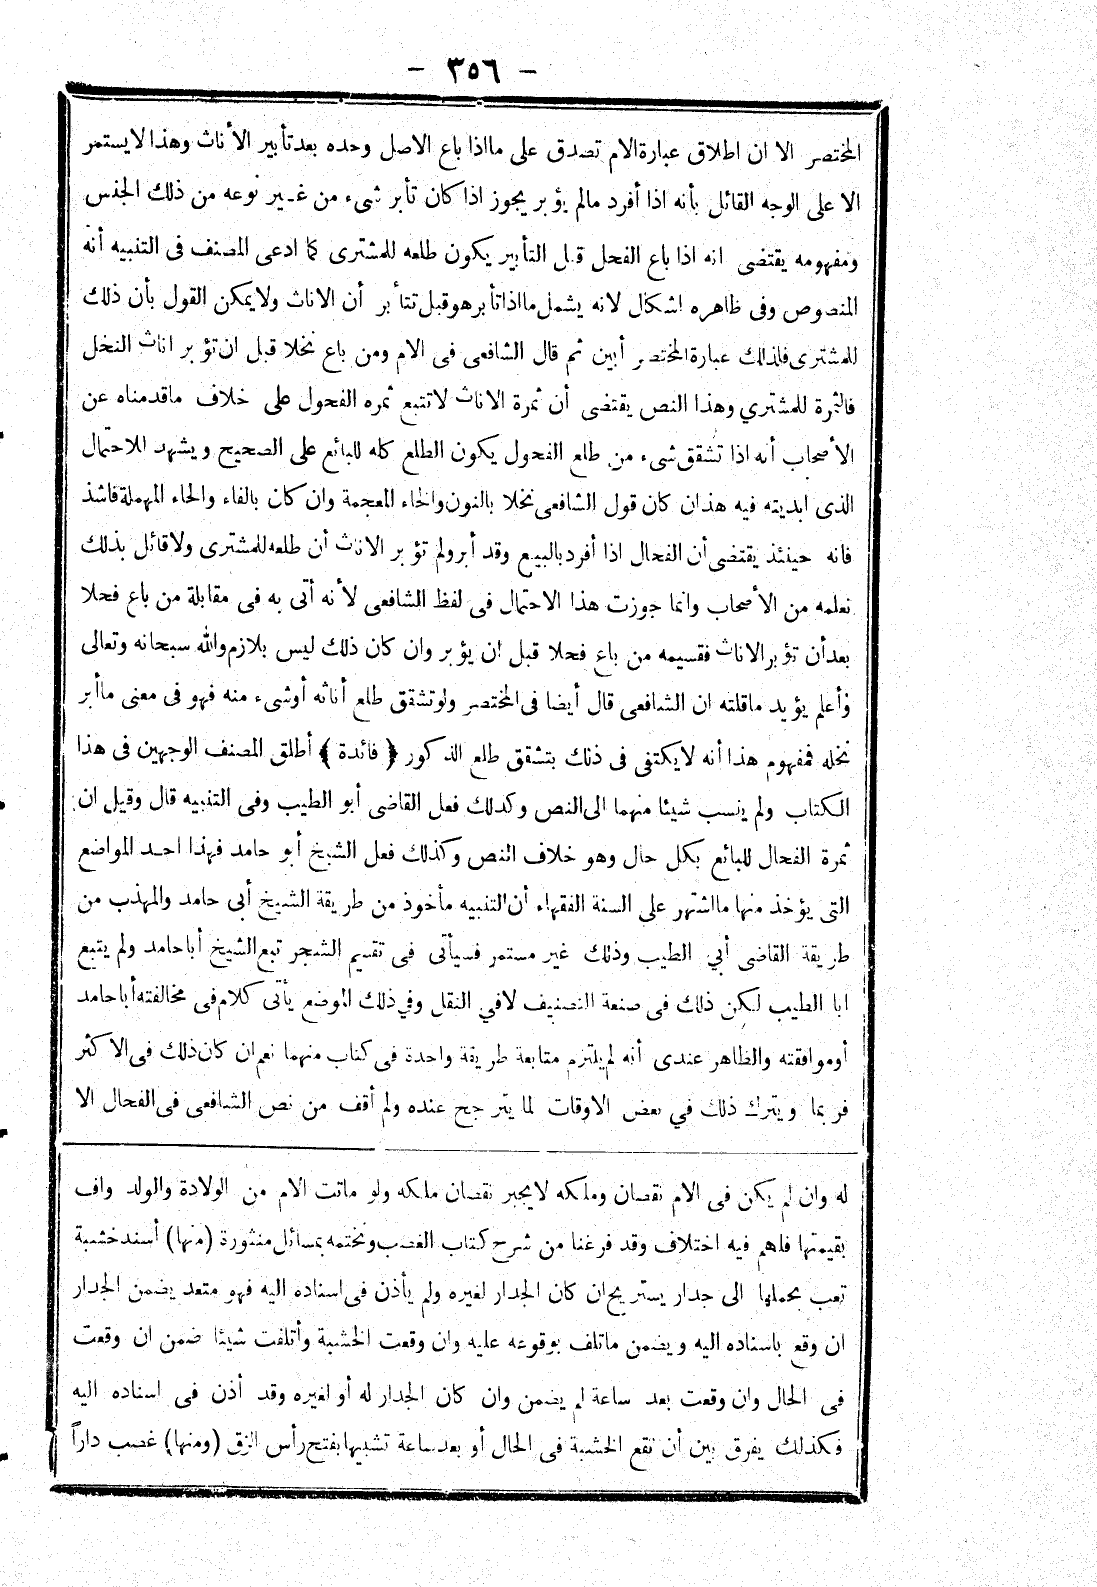 - ٣٥٦ -
المختصر الا ان اطلاق عبارة الام تصدق على ما اذا باع الاصل وحده بعد تأبير الأناث وهذا لا يستمر
الا على الوجه القائل بأنه اذا أفرد مالم يؤبر يجوز اذا كان تأبر شىء من غير نوعه من ذلك الجنس
ومفهومه يقتضى انه اذا باع الفحل قبل التأبير يكون طلعه للمشترى كما ادعى المصنف فى التنبيه أنه
المنصوص وفى ظاهره اشكال لانه يشمل ما اذا تأبر هو قبل تتأبر أن الاناث ولا يمكن القول بأن ذلك
للمشترى فلذلك عبارة المختصر أبين ثم قال الشافعى فى الام ومن باع نخلا قبل ان تؤبر اناث النخل
فالثمرة للمشتري وهذا النص يقتضى أن ثمرة الاناث لا تتبع ثمره الفحول على خلاف ماقدمناه عن
الأصحاب أنه اذا تشقق شىء من طلع الفحول يكون الطلع كله للبائع على الصحيح ويشهد للاحتمال
الذى ابديته فيه هذان كان قول الشافعى نخلا بالنون والخاء المعجمة وان كان بالفاء والحاء المهملة فاشذ
فانه حينئذ يقتضى أن الفحال اذا أفرد بالبيع وقد أبر ولم تؤبر الاناث أن طلعه للمشترى ولا قائل بذلك
نعلمه من الأصحاب وانما جوزت هذا الاحتمال فى لفظ الشافعى لأنه أتى به فى مقابلة من باع فحلا
بعد أن تؤبر الاناث فقسيمه من باع فحلا قبل ان يؤبر وان كان ذلك ليس بلازم والله سبحانه وتعالى
أعلم يؤيد ماقلته ان الشافعى قال أيضا فى المختصر ولو تشقق طلع أناثه أو شىء منه فهو فى معنى ما أبر
نخله فمفهوم هذا أنه لا يكتفى فى ذلك بتشقق طلع الذكور ﴿ فائدة ﴾ أطلق المصنف الوجهين فى هذا
الكتاب ولم ينسب شيئا منهما الى النص وكذلك فعل القاضى أبو الطيب وفى التنبيه قال وقيل ان
ثمرة الفحال للبائع بكل حال وهو خلاف النص وكذلك فعل الشيخ أبو حامد فهذا احد المواضع
التى يؤخذ منها ما اشتهر على السنة الفقهاء أن التنبيه مأخوذ من طريقة الشيخ أبى حامد والمهذب من
طريقة القاضى أبي الطيب وذلك غير مستمر فسيأتى فى تقسيم الشجر تبع الشيخ أبا حامد ولم يتبع
ابا الطيب لكن ذلك فى صنعة التصنيف لا في النقل وفي ذلك الموضع يأتى كلام فى مخالفته أبا حامد
أو موافقته والظاهر عندى أنه لم يلتزم متابعة طريقة واحدة فى كتاب منهما نعم ان كان ذلك فى الاكثر
فربما ويترك ذلك في بعض الاوقات لما يترجح عنده ولم أقف من نص الشافعى فى الفحال الا
له وان لم يكن فى الام نقصان وملكه لا يجبر نقصان ملكه ولو ماتت الام من الولادة والولد واف
بقيمتها فلهم فيه اختلاف وقد فرغنا من شرح كتاب الغصب ونختمه بمسائل منثورة (منها) أسند خشبة
تعب بحملها الى جدار يستريح ان كان الجدار لغيره ولم يأذن فى اسناده اليه فهو متعد يضمن الجدار
ان وقع باسناده اليه ويضمن ما تلف بوقوعه عليه وان وقعت الخشبة وأتلفت شيئا ضمن ان وقعت
فى الحال وان وقعت بعد ساعة لم يضمن وان كان الجدار له أو لغيره وقد أذن فى اسناده اليه
فكذلك يفرق بين أن تقع الخشبة فى الحال أو بعد ساعة تشبيها بفتح رأس الزق (ومنها) غصب داراً